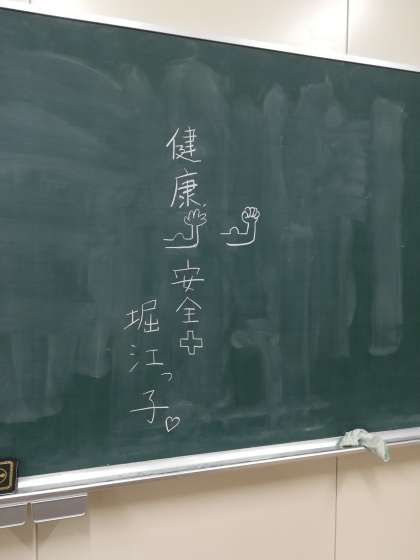 健康安全
堀江っ子